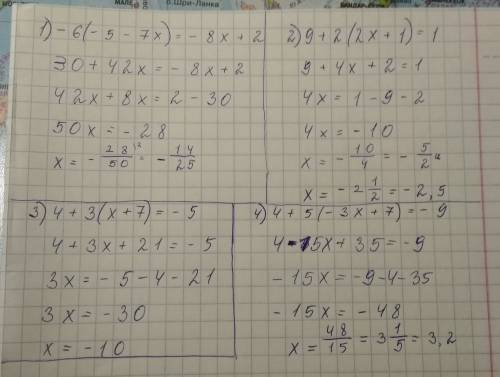 р.Шри-Ланка
1) -6(-5-7x)=-8x+2
30+42x=-8x+2
42x+8x=2-30
50x=-28
x=-28/50=-14/25
2) 9+2(2x+1)=1
9+4x+2=1
4x=1-9-2
4x=-10
x=-10/4=-5/2
x=-2 1/2=-2,5
3) 4+3(x+7)=-5
4+3x+21=-5
3x=-5-4-21
3x=-30
x=-10
4) 4+5(-3x+7)=-9
4-15x+35=-9
-15x=-9-4-35
-15x=-48
x=48/15=3 1/5=3,2